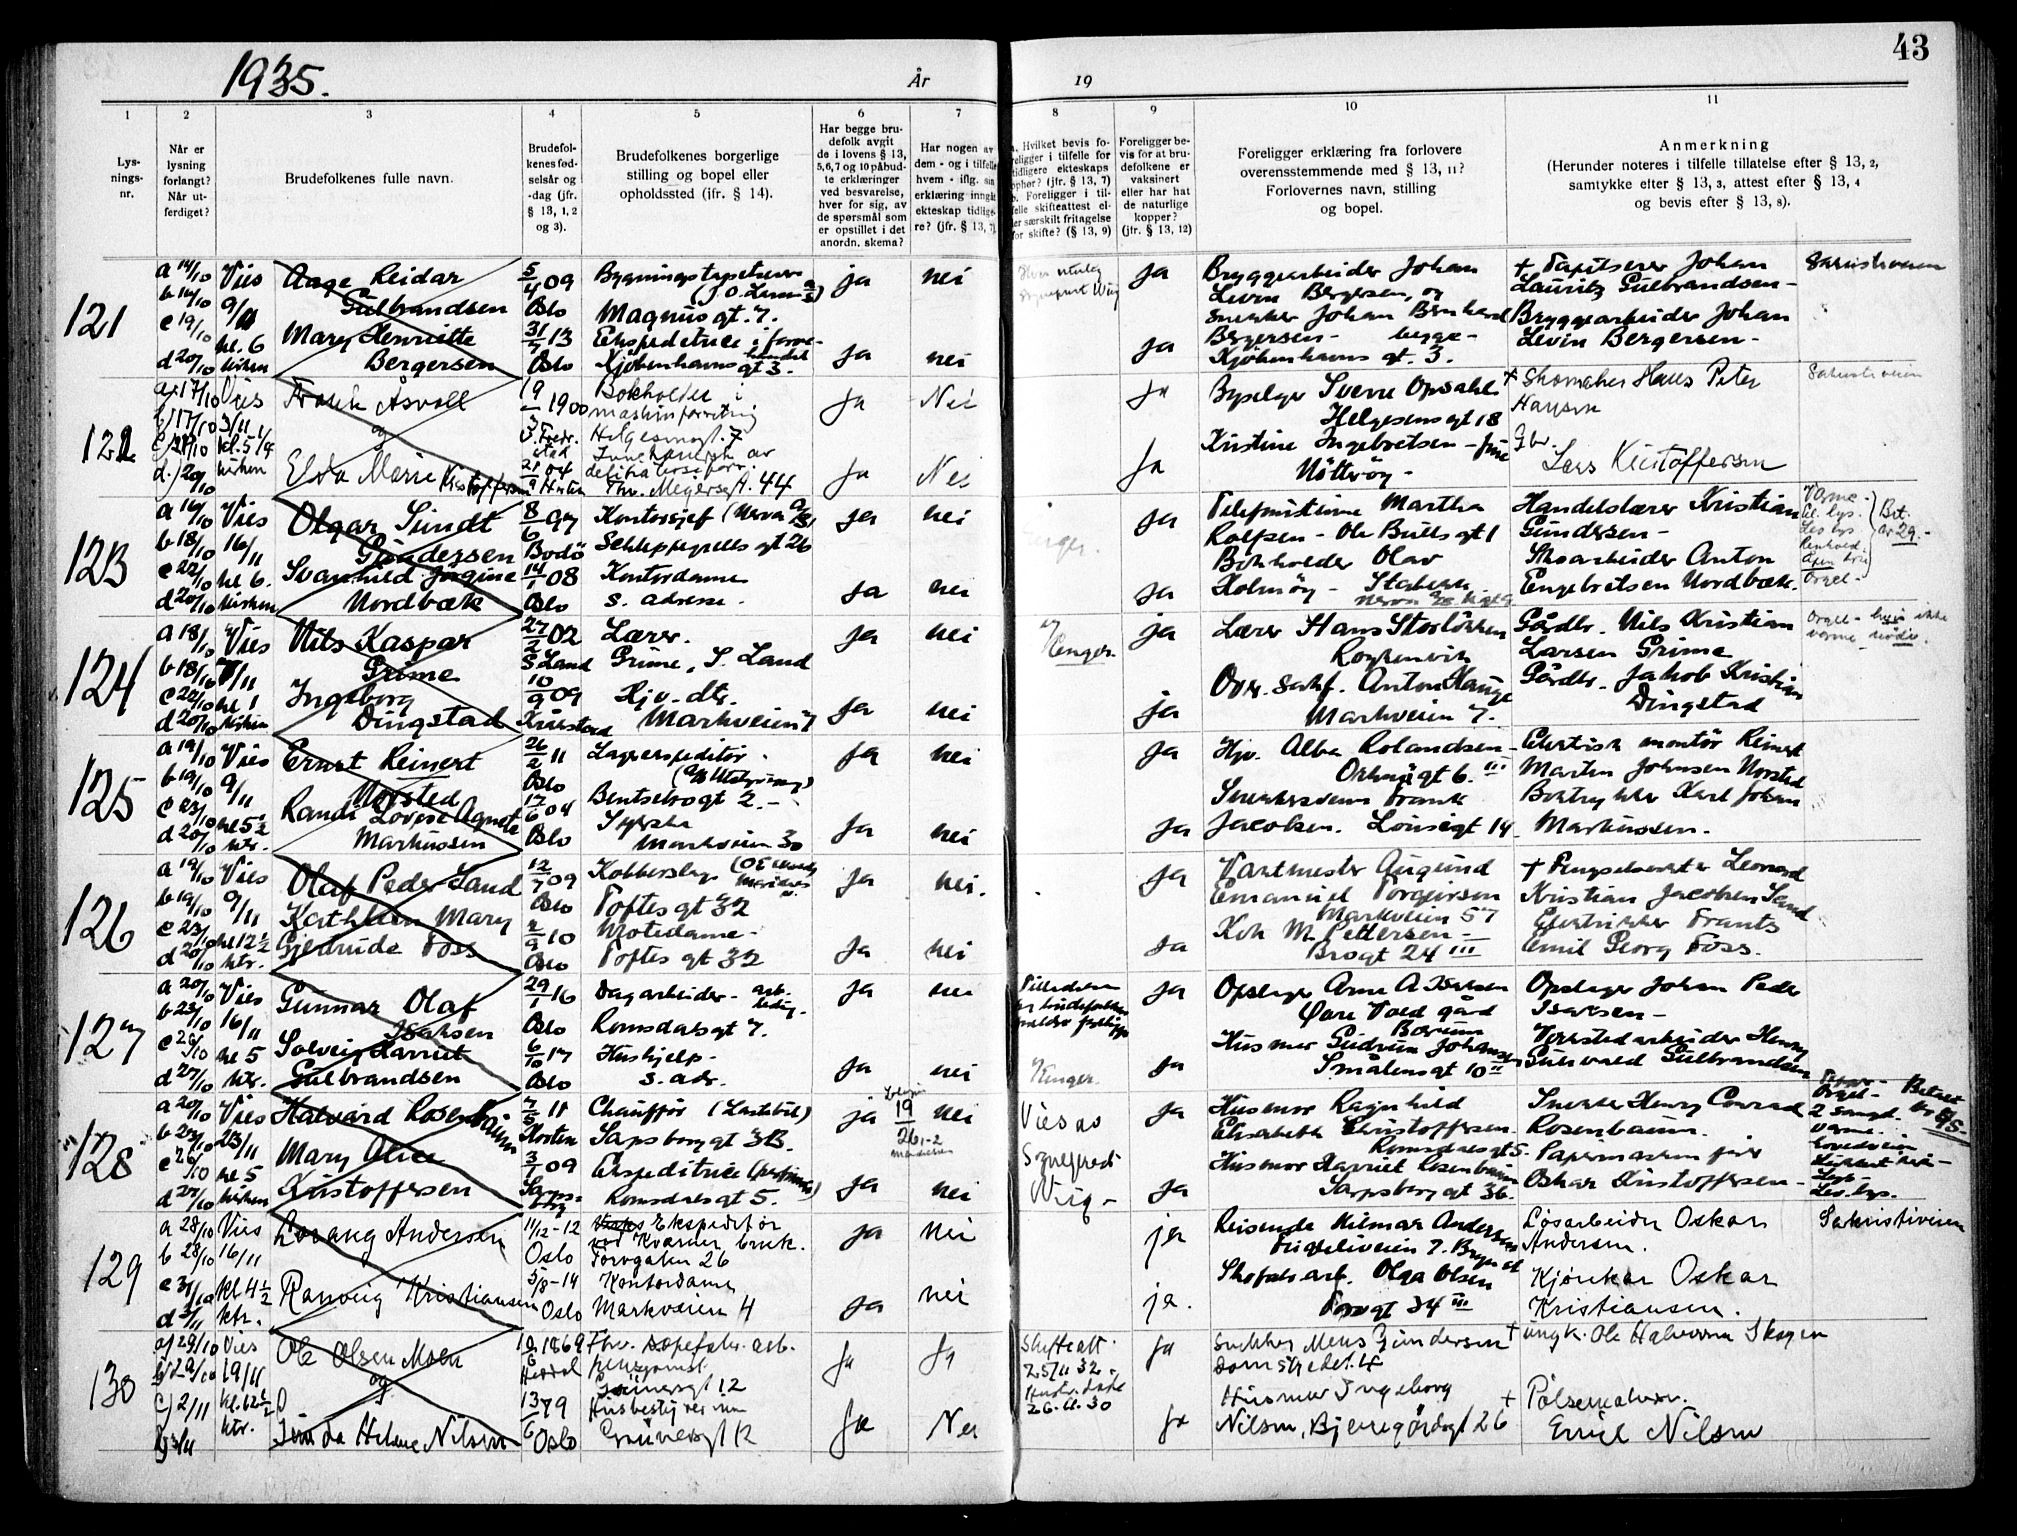 1935.
År
19
43
1
2
3
4
5
6
7
8
9
10
11
Lys-
nings-
nr.
Når er
lysning
forlangt?
Når ut-
ferdiget?
Brudefolkenes fulle navn.
Brudefol-
kenes fød-
selsår og
-dag (jfr.
§ 13, 1, 2
og 3).
Brudefolkenes borgerlige
stilling og bopel eller
opholdssted (ifr. § 14).
Har begge bru-
defolk avgit
de i lovens § 13,
5,6,7 og 10 påbud-
te erklæringer
ved besvarelse,
hver for sig, av
de spørsmål som
er opstillet i det
anordn. skema?
Har nogen av
dem - og i tilfelle
hvem - iflg. sin
erklæring inngå
ekteskap tidlige-
re? (jfr. § 13, 7)
Hvilket bevis fo-
religger i tilfelle for
tidligere ekteskaps
ophør? (jfr. § 13, 7)
b. Foreligger i til-
felle skifteattest el-
ler særskilt fritagelse
for skifte? (§ 13, 9)
Foreligger be-
vis for at bru-
defolkene er
vaksinert
eller har hat
de naturlige
kopper?
(jfr. § 13, 12)
Foreligger erklæring fra forlovere
overensstemmende med § 13, 11?
Forlovernes navn, stilling
og bopel.
Anmerkning
(Herunder noteres i tilfelle tillatelse efter § 13, 2,
samtykke efter § 13, 3, attest efter § 13, 4
og bevis efter § 13, 8).
121
a 14/10 Vies
b 14/10 9/11
c 19/10 kl. 6
d 20/10 kirken
Aage Reidar
Gulbrandsen
Mary Henriette
Bergersen
5/4 09
Oslo
31/7 13
Oslo
Bygningstapetserer
Magnusgt. 7.
Ekspeditrice i farve-
handel
Kjøbenhavnsgt 3.
ja nei
ja nei
ja
ja
Bryggearbeider Johan
Levin Bergersen, og
Snekker Johan Bernhard
Bergersen - begge -
Kjøbenhavns gt. 3.
+ Tapetserer Johan
Lauritz Gulbrandsen -
Bryggearbeider Johan
Levin Bergersen -
Sakristiveien
122
a) 17/10 Vies
b) 17/10 3/11
kl. 5 1/4
d.) 20/10 kirken
Frank Åsvoll
og
Elva Marie Kristoffersen
19/3 1900
Fredr.
stad
21/9 04
Bokholder i
maskinforretning
Helgesensgt. 7
Thv. Meyersgt. 44
Ja Nei
Ja Nei
ja
ja
Byselger Sverre Opsahl
Helgesensgt 18
Kristine Ingebretsen -
Nötterøy -
+ Skomaker Hans Peter
Hansen
Gbr.
Lars Kristoffersen
Sakristiveien
123
a 16/10 Vies
b 18/10 16/11
c 22/10 kl 6.
d 20/10 kirken
Olgar Sundt
Gundersen
Svanhild Jorgine
Nordbæk
8/6 97
Bodö
14/1 08
Oslo
Kontorsjef
Schleppegrells gt 26
Kontordame
s. adresse.
ja nei
ja nei
ja
ja
Telefonistinne Martha
Rolfsen - Ole Bulls gt 1
Bokholder Olav
Holmöy - Stabekk
Handelslærer Kristian
Gundersen -
Skoarbeider Anton
Engebretsen Nordbæk.
Varme -
El. lys.
Lev. lys.
Renhold.
Orgel -
Bet.
29.-
124
a 18/10 Vies
b 18/10 7/11
c 22/10 kl 1
d 20/10 kirken
Nils Kaspar
Grime
Ingeborg
Dingstad
27/2 02
S. Land
10/9 09
Lærer.
Grime, S. Land
Hjv. dtr.
Markveien 7
ja nei
ja nei
ja
ja
Lærer Hans Storlökken
Röykenvik
Anton Hauge
Markveien 7.
Gårdbr. Nils Kristian
Larsen Grime
Gårdbr. Jakob Kristian
Dingstad
Orgel -
125
a 19/10 Vies
b 19/10 9/11
c 23/10 kl 5 1/2
d 20/10 ktr.
Ernst Reinert
Norsted
Randi Lovise Agnete
Markussen
26/2 11
Oslo
17/6 04
Oslo
Lagerekspeditör.
Bentsebrogt 2. -
Syerske
Markveien 30
ja nei
ja nei
ja
ja
Hjv. Alba Rolandsen -
gt 6. III
Snekkersvenn Frank
Jacobsen. Louisegt 14.
Elektrisk montör Reinert
Marten Johnsen Norsted
Boktrykker Karl Johan
Markussen.
126
a 19/10 Vies
b 19/10 9/11
c 23/10 kl 12 1/2
d 20/10 ktr.
Olaf Peder Sand
Kathleen Mary
Gjertrude Foss
12/7 09
Oslo
2/9 10
Oslo
Kobberslager
Toftes gt 32
Motedame -
Toftes gt 32
ja nei.
ja nei
ja
ja
Vaktmester Augund
Emanuel Torgersen
Markveien 57
M. Pettersen -
Brogt 24 III
+ Fengselsbetjent Leonard
Kristian Jacobsen Sand
Elektriker Frants
Emil Georg Foss.
127
a 20/10 Vies
b 23/10 16/11
c 26/10 kl 5
d 27/10 ktr.
Gunnar Olaf
Isaksen
Solveig Harriet
Gulbrandsen
29/1 16
Oslo
6/10 17
Oslo
Dagarbeider - arb.
ledig.
Romsdalsgt 7.
Hushjelp -
s. adr.
ja nei
ja nei
ja
ja
Opslager Arne A. Isaksen
Øvre Voll gård
Bærum
Husmor Gudrun Johansen
Smålensgt 10 II
Opslager Johan Peder
Isaksen -
Verkstedarbeider Henry
Gulbrandsen
128
a 20/10 Vies
b 23/10 23/11
c 26/10 kl 5
d 27/10 kirken
Halvard Rosenbaum
Mary Alice
Kristoffersen
7/5 11
Horten
3/1 09
Sarps-
borg
Chauffør (Lastebil)
Sarpsborggt 3B.
Ekspeditrice
Romsdalsgt 5.
ja nei
ja nei
Vies av
Sogneprest
Wiig -
ja
ja
Husmor Ragnhild
Elisabeth Christoffersen
Romsdalsgt 5.
Husmor Harriet Rosenbaum
Sarpsborggt 36.
Snekker Henry Conrad
Rosenbaum.
Papermaskinfører
Oskar Kristoffersen -
Orgel -
2 sang.
Varme.
Lev. lys.
Betalt
129
a 28/10 Vies
b 28/10 16/11
c 31/10 kl 4 1/2
ktr.
Lorang Andersen
Ranveig Kristiansen
11/12-12
Oslo
5/8-14
Oslo
Ekspeditør
ved Kværner bruk.
Torvgaten 26
Kontordame
Markveien 4
ja nei
ja nei
ja
ja.
Reisende Hilmar Andersen
7. Bryn st
Skofabr.arb. Olga Olsen
Torvgt 34 III
Løsarbeider Oskar
Andersen.
Kjørekar Oskar
Kristiansen.
Sakristiveien
130
a) 29/10 Vies
b) 29/10 19/11
c) 2/11 kl. 12 1/2
ktr.
Ole Olsen Moen
og
Helene Nilsen
1869
Heddal
13/6 79
Oslo
Fhv. sæpefabr. arb.
pensjonist
Grünersgt 12
Husbestyrerinne
Grünersgt 12
Ja Ja
Ja Nei
Skifteatt.
25/11 32 -
26. 11. 30
ja
ja
Snekker Mens Gundersen
Husmor Ingeborg
Nilsen, Bjerregårdsgt 26
+ ungk. Ole Halvorsen Skogen
+ Pølsemaker.
Emil Nilsen